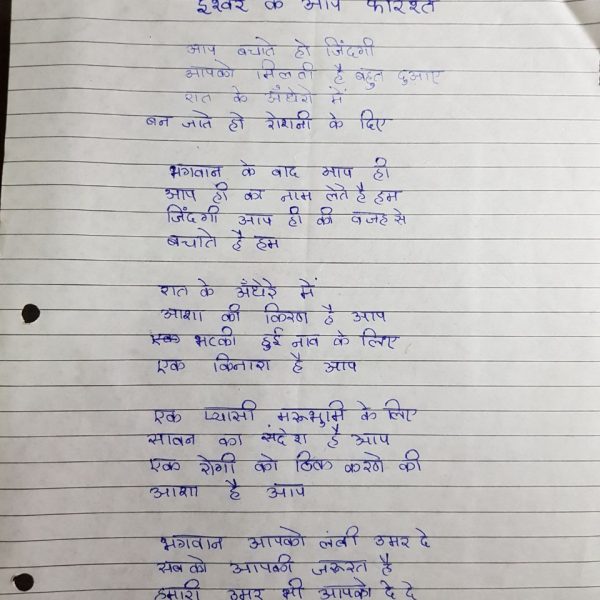 ईश्वर के आप फरिश्ते
आप बचाते हो जिंदगी
आपको मिलती है बहुत दुआए
रात के अँधेरो में
बन जाते हो रोशनी के दिए
भगवान के बाद आप ही
आप ही का नाम लेते है हम
जिंदगी आप ही की वजह से
बचाते है हम
रात के अँधेरे में
आशा की किरण है आप
एक भटकी हुई नाव के लिए
एक किनारा है आप
एक प्यासी मरूभुमि के लिए
सावन का संदेश है आप
एक रोगी को ठिक करणे की
आशा है आप
भगवान आपको लंबी उमर दे
सबको आपकी जरूरत है
हमारी उमर भी आपको दे दे